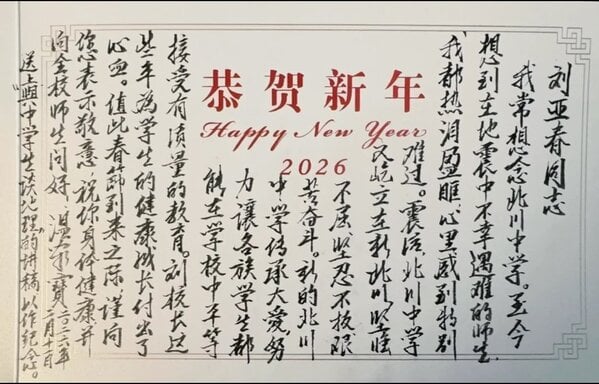 恭贺新年
Happy New Year
2026
刘亚春同志
我常想念北川中学。至今
想到在地震中不幸遇难的师生
我都热泪盈眶,心里感到特别
难过。震后,北川中学
又屹立在新北川,坚强
不屈、坚忍不拔、艰
苦奋斗。新的北川
中学传承大爱,努
力让各族学生都
能在学校中平等
接受有质量的教育。刘校长这
些年为学生的健康成长付出了
心血。值此春节到来之际,谨向
您表示敬意,祝你身体健康并
向全校师生问好。温家宝
二〇二六年
二月十一日
送上《與中学生谈地理》的讲稿,以作纪念。